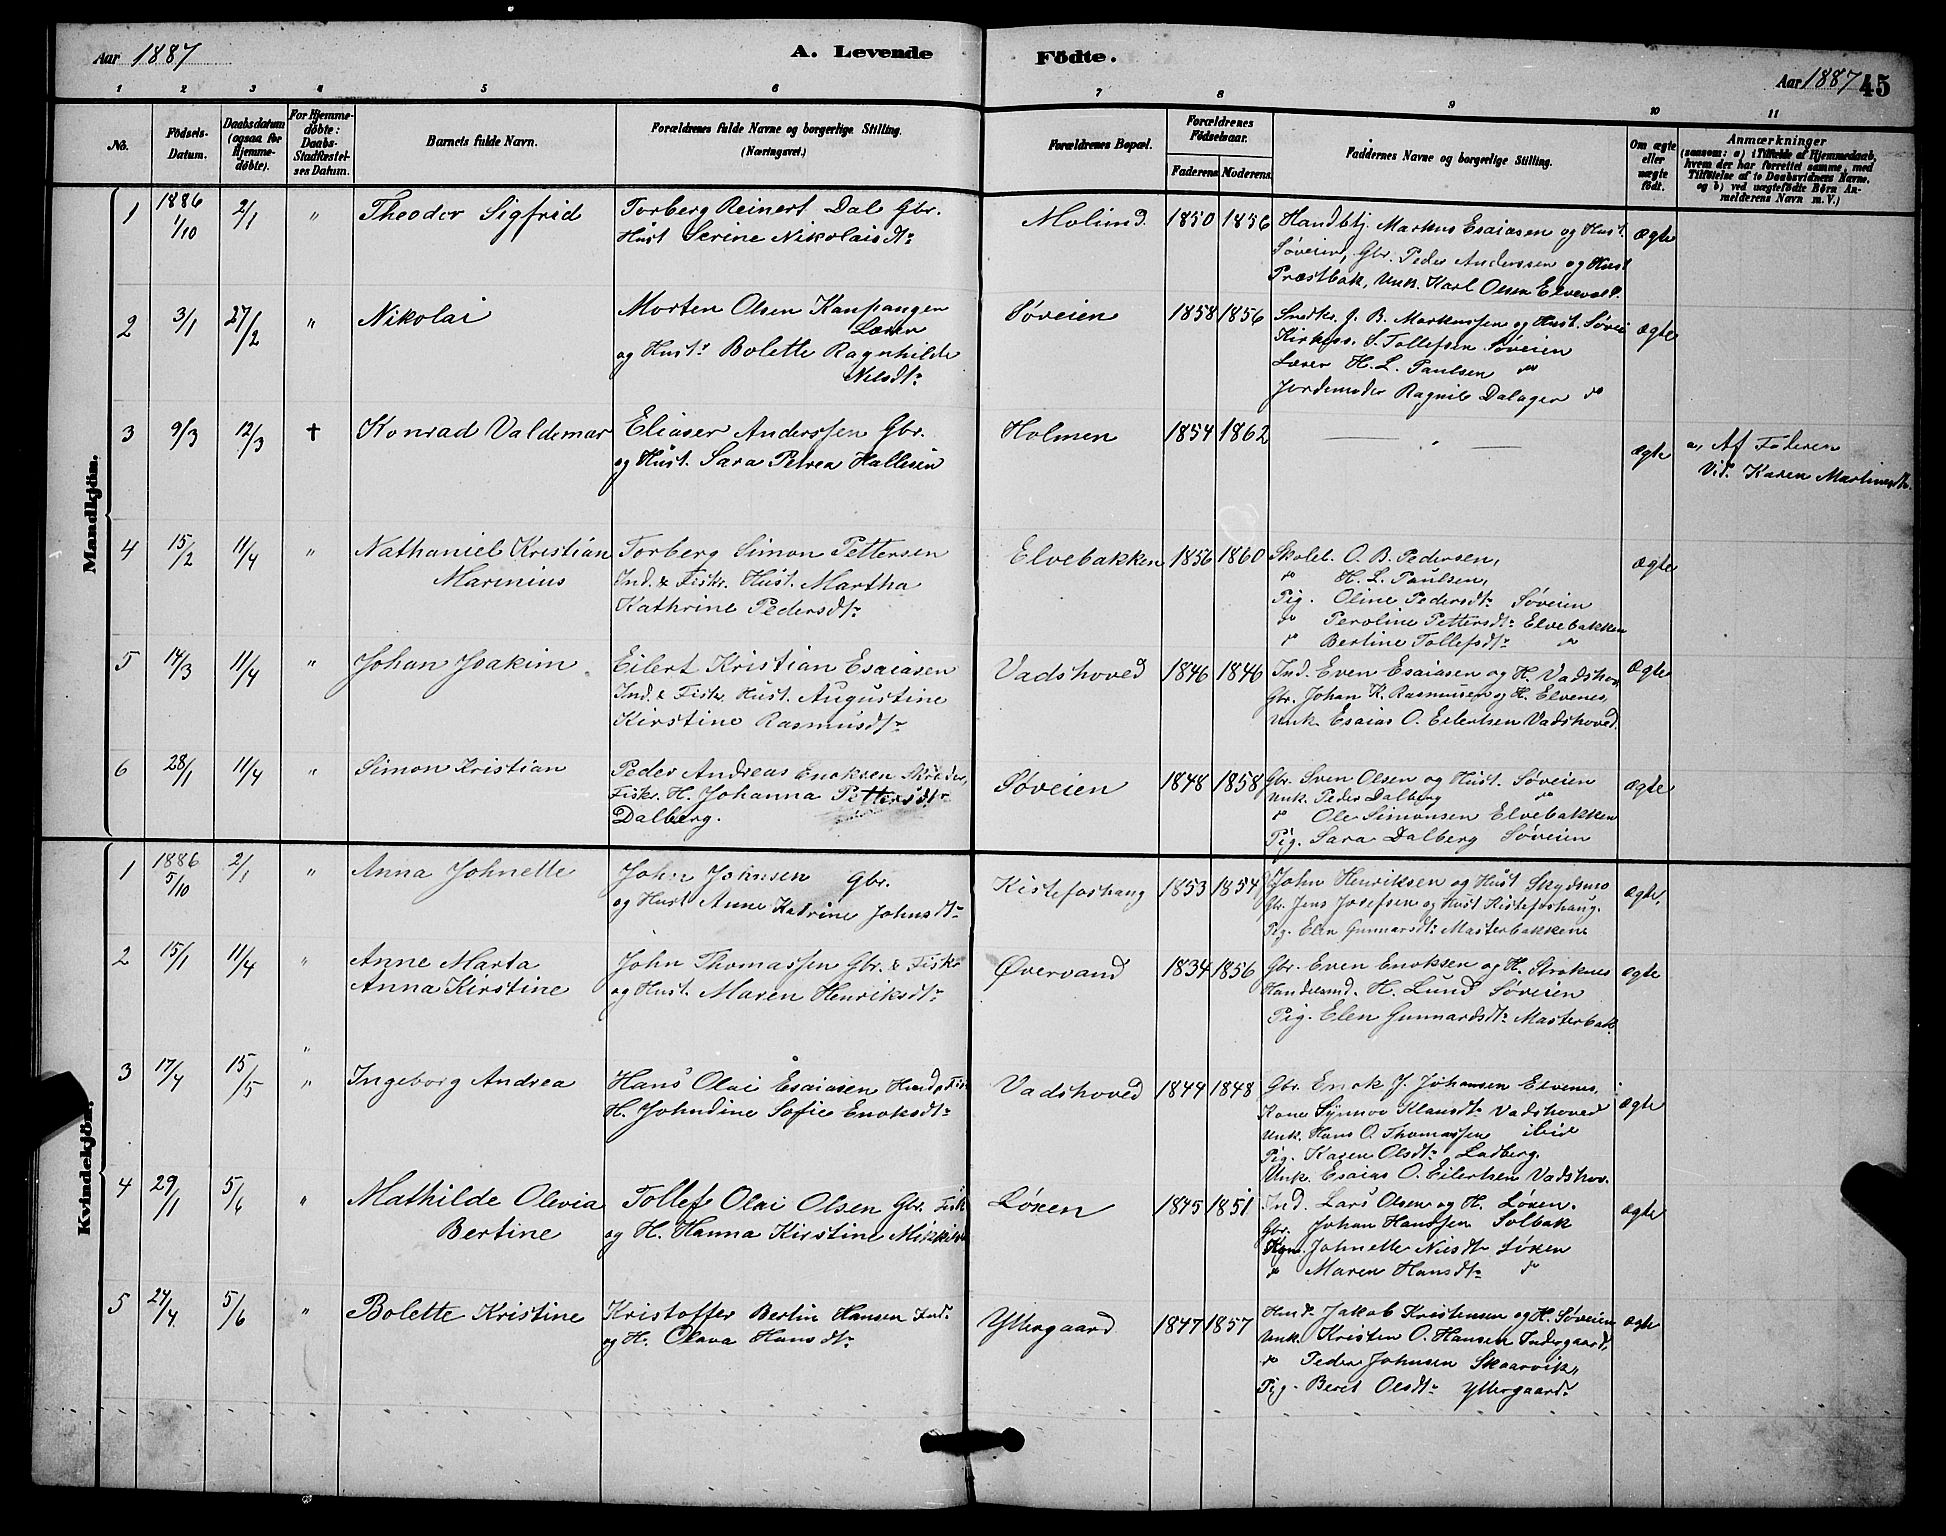 Aar 1887
A. Levende
Födte.
Aar 1887 45
1 2 3 4 5 6 7 8 9 10 11
No.
Födsels-
Datum.
Daabsdatum
(ogsaa for
Hjemme-
döbte).
For Hjemme-
döbte:
Daabs-
Stadfæstel-
ses Datum.
Barnets fulde Navn.
Forældrenes fulde Navne og borgerlige Stilling.
(Næringsvei.)
Forældrenes Bopæl.
Forældrenes
Födselsaar.
Faderens Moderens
Faddernes Navne og borgerlige Stilling.
Om ægte
eller
uægte
født.
Anmærkninger
(saasom: a) i Tilfælde af Hjemmedaab,
hvem der har forrettet samme, med
Tilföielse af to Daabsvidners Navne,
og b) ved uægtefödte Börn An-
melderens Navn m.V.)
Mandkjön.
1 1886 1/10 2/1 " Theodor Sigfrid
Torberg Reinert Dal Gbr.
Hust Serine Nikolaisdtr
Molund 1850 1856
Handbtj. Markus Esaiasen og Hust.
Søveien, Gbr. Peder Anderssen og Hust
Præstbak, Unk. Karl Olsen Elvevold.
ægte
2 3/1 27/2 " Nikolai
Morten Olsen Kaupangen
Lærer
og Hustr Bolette Ragnhilde
Nilsdtr
Søveien 1858 1856
Snedkr. J. B. Markussen og Hust. Søvei
Kirkess. S. Tollefsen Søveien
Lærer H. L. Paulsen do
Jordemoder Ragnil Dalager do
ægte
3 9/3 12/3 † Konrad Valdemar
Eliaser Anderssen Gbr.
og Hust. Sara Petrea Hallesen
Holmen 1854 1862
ægte
a, Af Faderen
Vid. Karen Martinsdtr.
4 15/2 11/4 " Nathaniel Kristian
Marinius
Torberg Simon Pettersen
Ind. & Fiskr. Hust. Martha
Kathrine Pedersdtr
Elvebakken 1856 1860
Skolel. O. B. Pedersen,
do H. L. Paulsen,
Pig. Oline Pedersdtr Søveien
do Peroline Pettersdtr Elvebakken
do Bertine Tollefsdtr do
ægte
5 14/3 11/4 " Johan Joakim
Eilert Kristian Esaiasen
Ind. & Fiskr. Hust. Augustine
Kirstine Rasmusdtr
Vadshoved 1846 1846
Ind. Even Esaiasen og H. Vadshov.
Gbr. Johan K. Rasmusen og H. Elvenes,
Unk. Esaias O. Eilertsen Vadshoved.
Ægte
6 28/1 11/4 " Simon Kristian
Peder Andreas Enoksen
Fiskr. H. Johanna Pettersdtr
Dalberg.
Søveien 1848 1858
Gbr. Sven Olsen og Hust. Søveien
Unk. Peder Dalberg do
do Ole Simonsen Elvebakken
Pig. Sara Dalberg Søveien
ægte
Kvindekjön.
1 1886 5/10 2/1 " Anna Johnette
John Johnsen Gbr.
og Hust Anne Katrine Johnsdtr
Kistefoshaug 1853 1854
John Henriksen og Hust Skydsmo
Gbr. Jens Josefsen og Hust Kistefoshaug.
Pig. Elen Gunnarsdtr Masterbakken
ægte.
2 15/1 11/4 " Anne Marta
Anna Kirstine
John Thomassen Gbr. & Fiskr
og Hust. Maren Henriksdtr
Øvervand 1834 1856
Gbr. Even Enoksen og H. Stroknes
Handelsmd. H. Lund Søveien
Pig. Elen Gunnardsdtr Masterbak.
ægte
3 17/4 15/5 " Ingeborg Andrea
Hans Olai Esaiasen
H. Johndine Sofie Enoksdtr
Vadshoved 1844 1848
Gbr. Enok J. Johansen Elvenes,
Kone Synnov Klausdtr Vadshoved
Unk. Hans O. Thomassen ibid
Pig. Karen Olsdtr Ladberg.
Unk. Esaias O. Eilertsen Vadshov.
ægte
4 29/1 5/6 " Mathilde Olevia
Bertine
Tollef Olai Olsen Gbr. Fisk
og H. Hanna Kirstine
Løxen 1845 1851
Ind. Lars Olsen og H. Løxen.
Gbr. Johan Hanssen Solbak
Kone. Johnette Nilsdtr Løxen
do Maren Hansdtr do
ægte
5 24/4 5/6 " Bolette Kristine
Kristoffer Bertin Hansen Ind.
og H. Olava Hansdtr
Yttergaard 1847 1857
Husd. Jakob Kristensen og H. Søveien
Unk. Kristen O. Hansen Indergaard,
do Peder Johnsen Skaarvik,
Pig. Beret Olsdtr Yttergaard
ægte